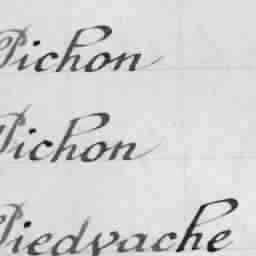 Pichon
Pichon
Piedvache